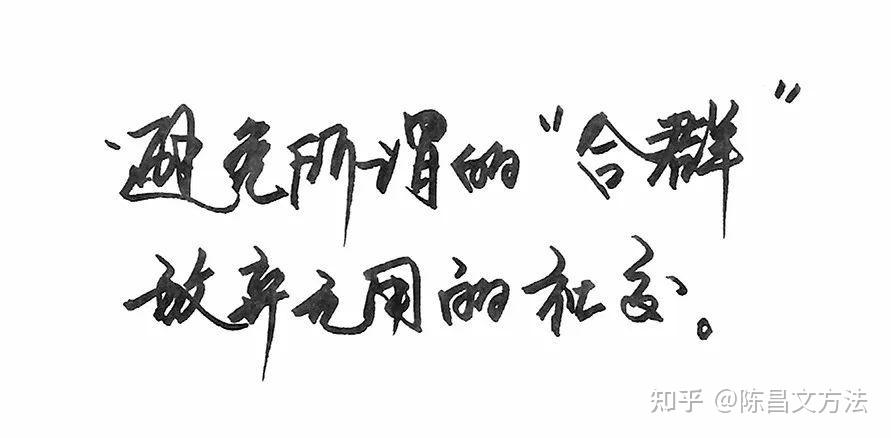 避免所谓的“合群”
放弃无用的社交。
知乎 @陈昌文方法